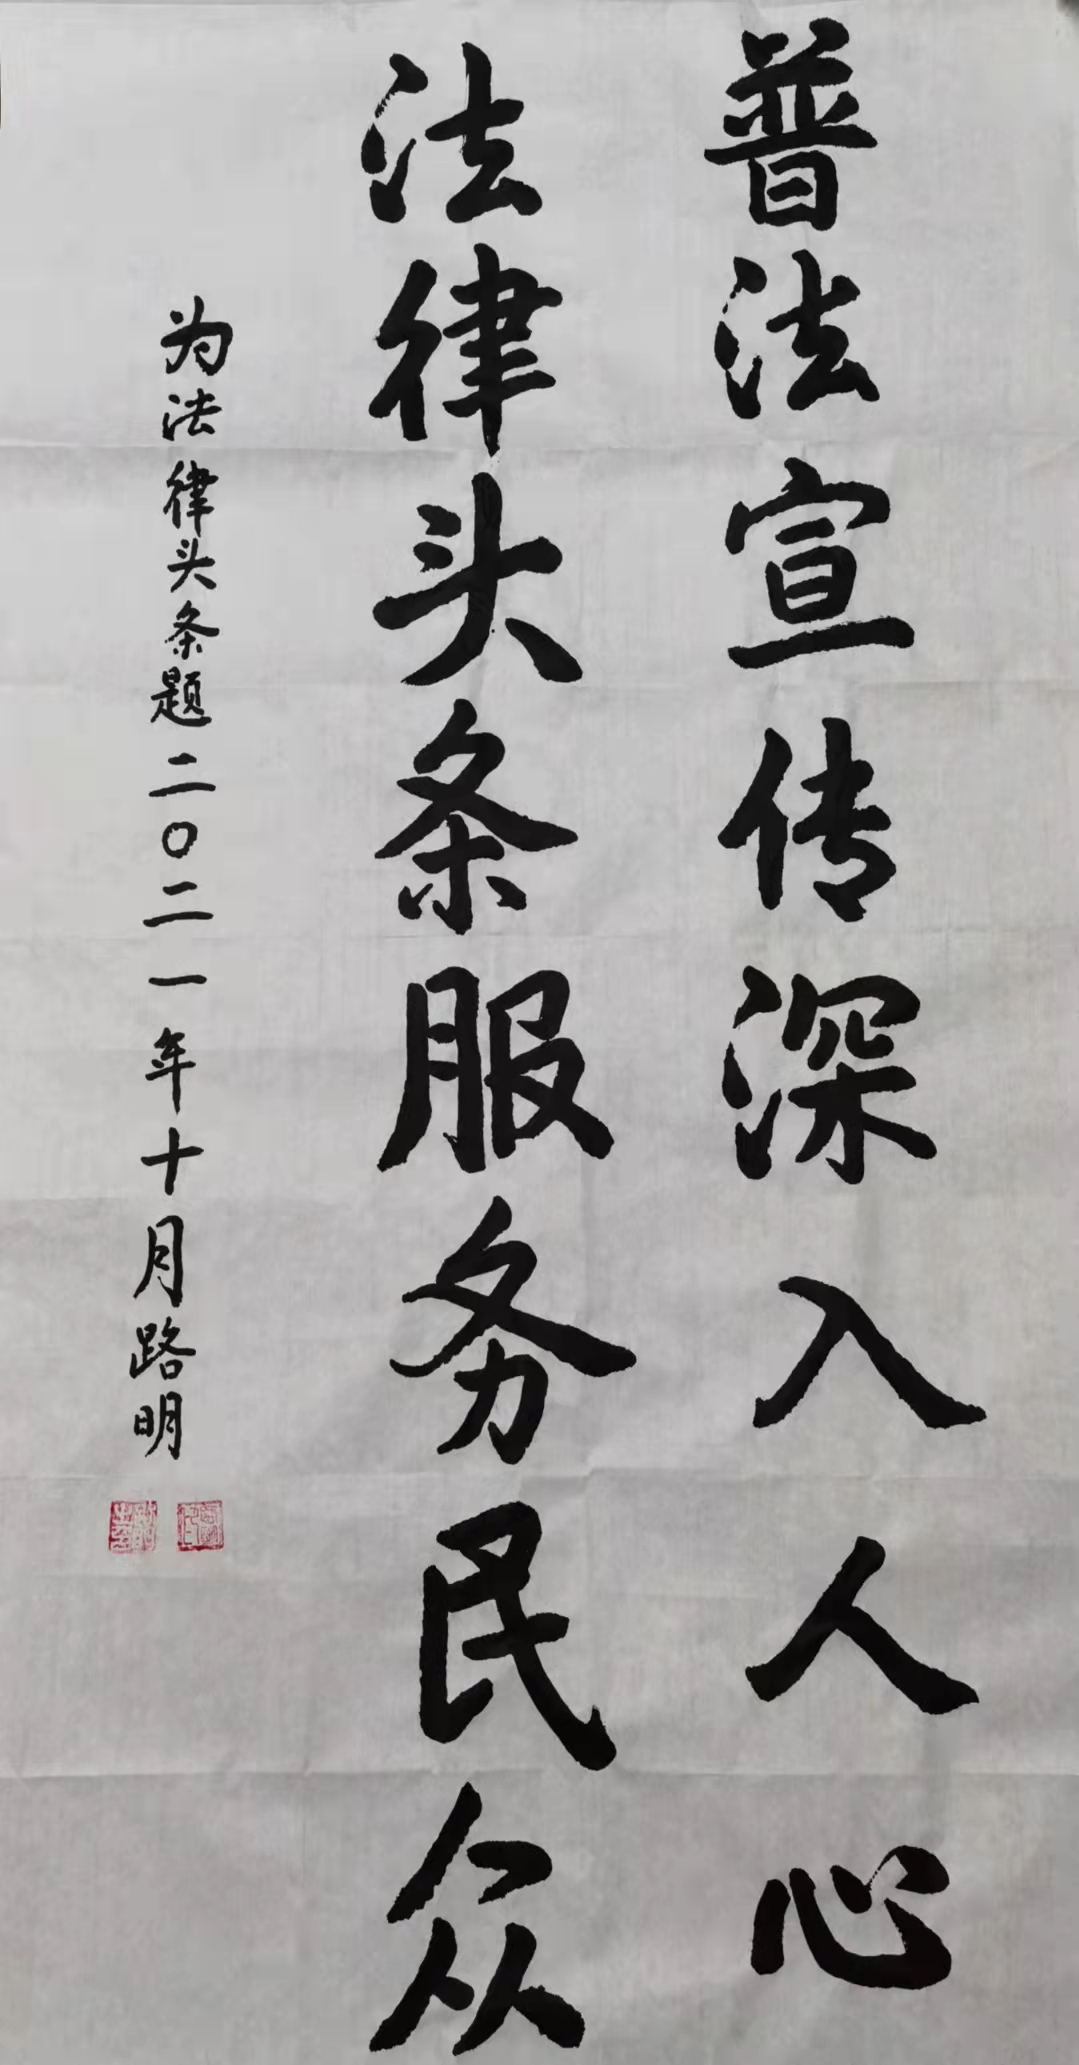 普法宣传深入人心
法律头条服务民众
为法律头条题二〇二一年十月路明